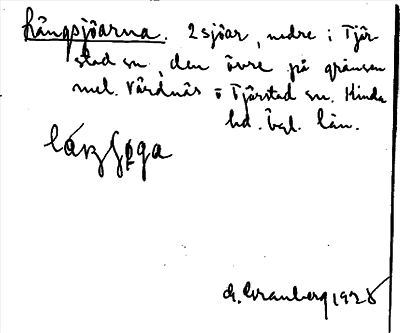 Långsjöarna. 2 sjöar, nedre i Tjär-
stad sn, den övre på gränsen
mel. Vårdnäs o Tjärstad sn. Hinda
hd. Ögl. län.
G. Granberg 1928